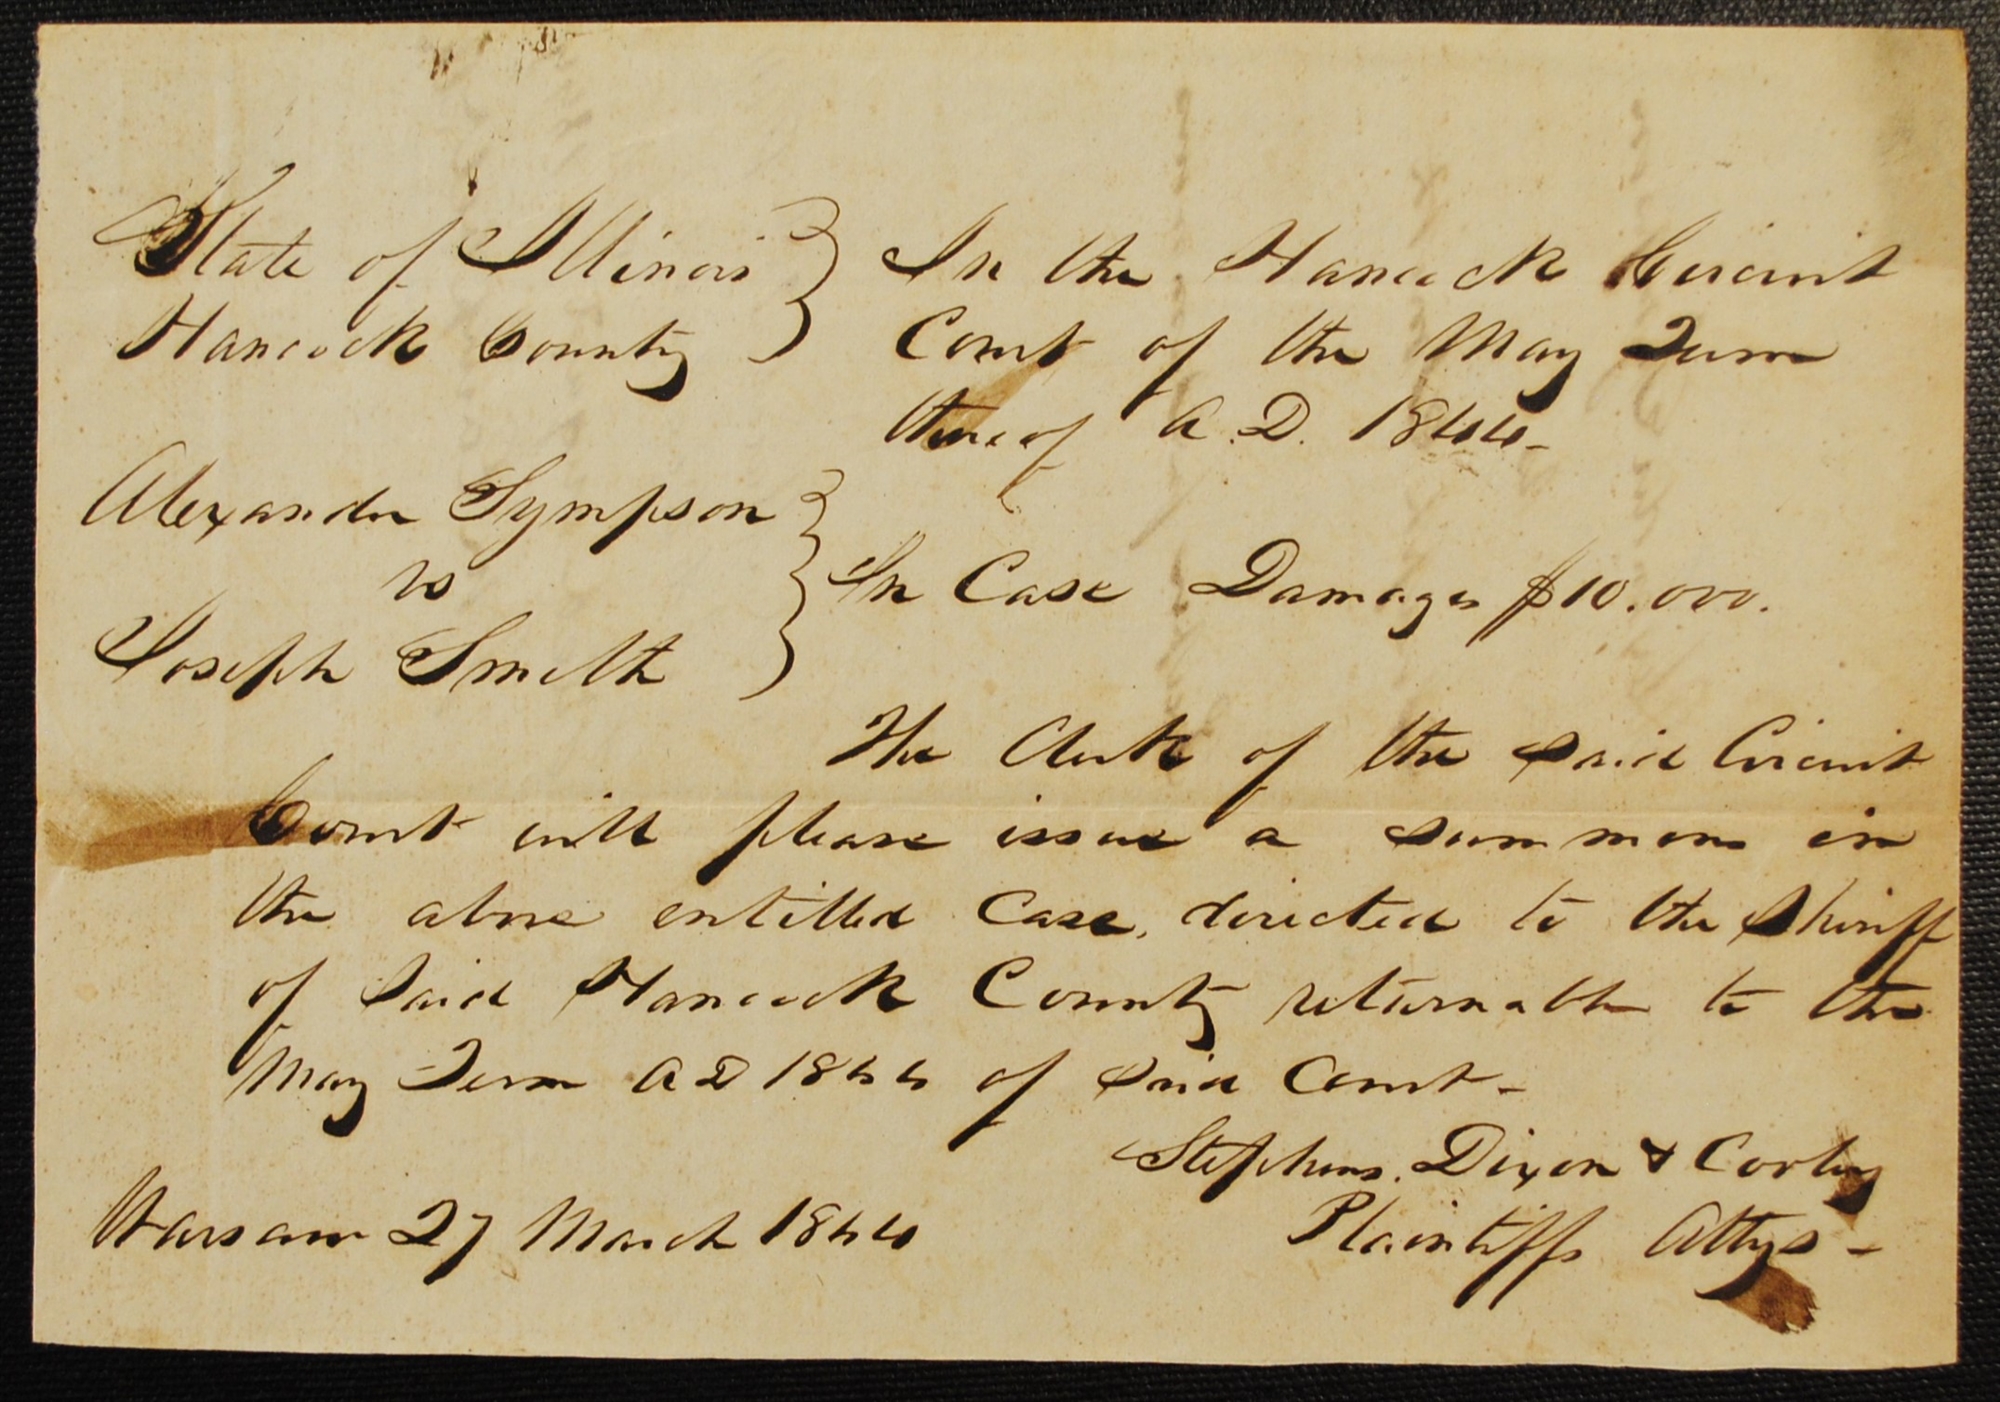 State of Illinois } In the Hancock Circuit
Hancock County } Court of the May Term
thereof A.D. 1844-
Alexander Sympson }
vs } In Case Damages $10.000.
Joseph Smith }
The Clerk of the said Circuit
Court will please issue a summons in
the above entitled Case, directed to the Sheriff
of said Hancock County returnable to the
May Term A D 1844 of said Court-
Stephens, Dixon & Corley
Warsaw 27 March 1844
Plaintiffs Attys-